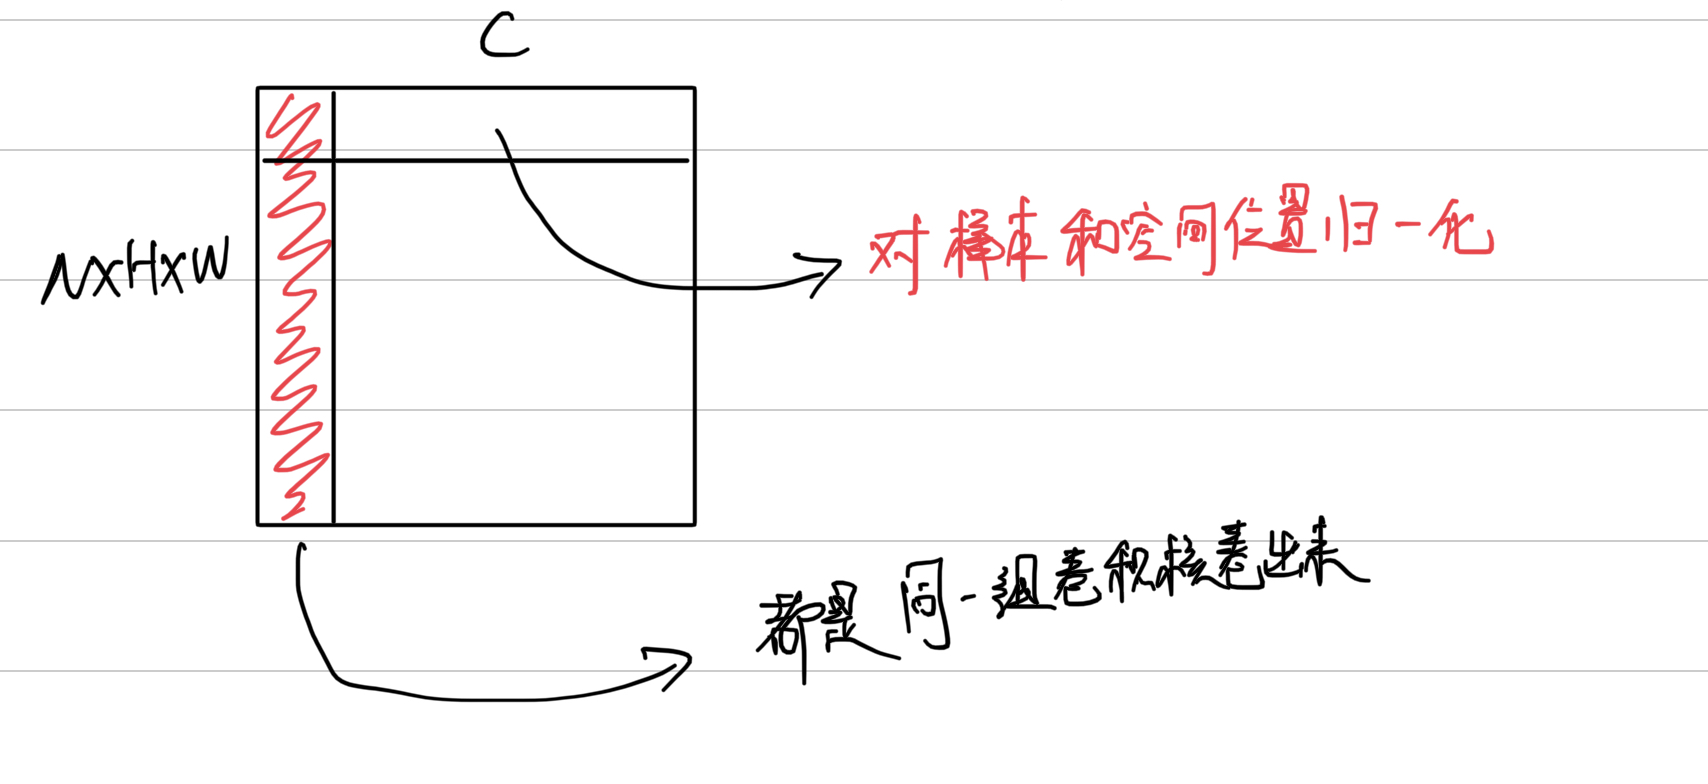 C
N×H×W
对样本和空间位置归一化
都是同一组卷积核卷出来